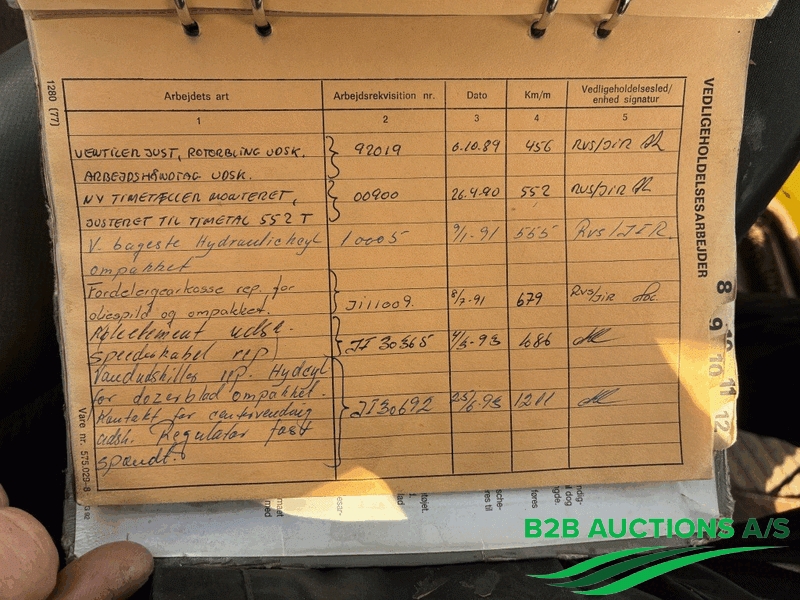 1280 (77)
VEDLIGEHOLDELSESARBEJDER
Arbejdets art Arbejdsrekvisition nr. Dato Km/m Vedligeholdelsesled/
enhed signatur
1 2 3 4 5
VENTILER JUST, ROTORBLING UDSK. 92019 6.10.89 456 RVS/JIR
ARBEJDSHÅNDTAG UDSK.
NY TIMETÆLLER MONTERET, 00900 26.4.90 552 RVS/JIR
JUSTERET TIL TIMETAL 552 T
V. bageste Hydraulickcyl 10005 9/1.91 565 RVS/JIR.
ompakket
Fordelergearkasse rep. for
oliespild og ompakket. Ji11009. 8/7.91 679 RVS/JIR
udsk.
Speederkabel rep JI 30365 4/3.93 1086
Vandudskiller rep. Hydcyl
for dozerblad ompakket. JI30692 25/6.93
Kontakt for centivending
udsk. Regulator fast
spændt.
8
9
10
10
11
12
Vare nr. 575.029-8
B2B AUCTIONS A/S